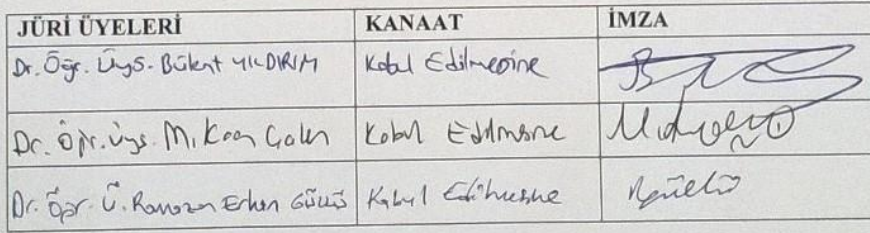 JÜRİ ÜYELERİ KANAAT İMZA
Dr. Öğr. Üys. Bülent YILDIRIM Kabul Edilmesine
Dr. Öğr. Üys. M. Kaan Kabul Edilmesine
Dr. Öğr. Ü. Ramazan Erhan Güllü Kabul Edilmesine